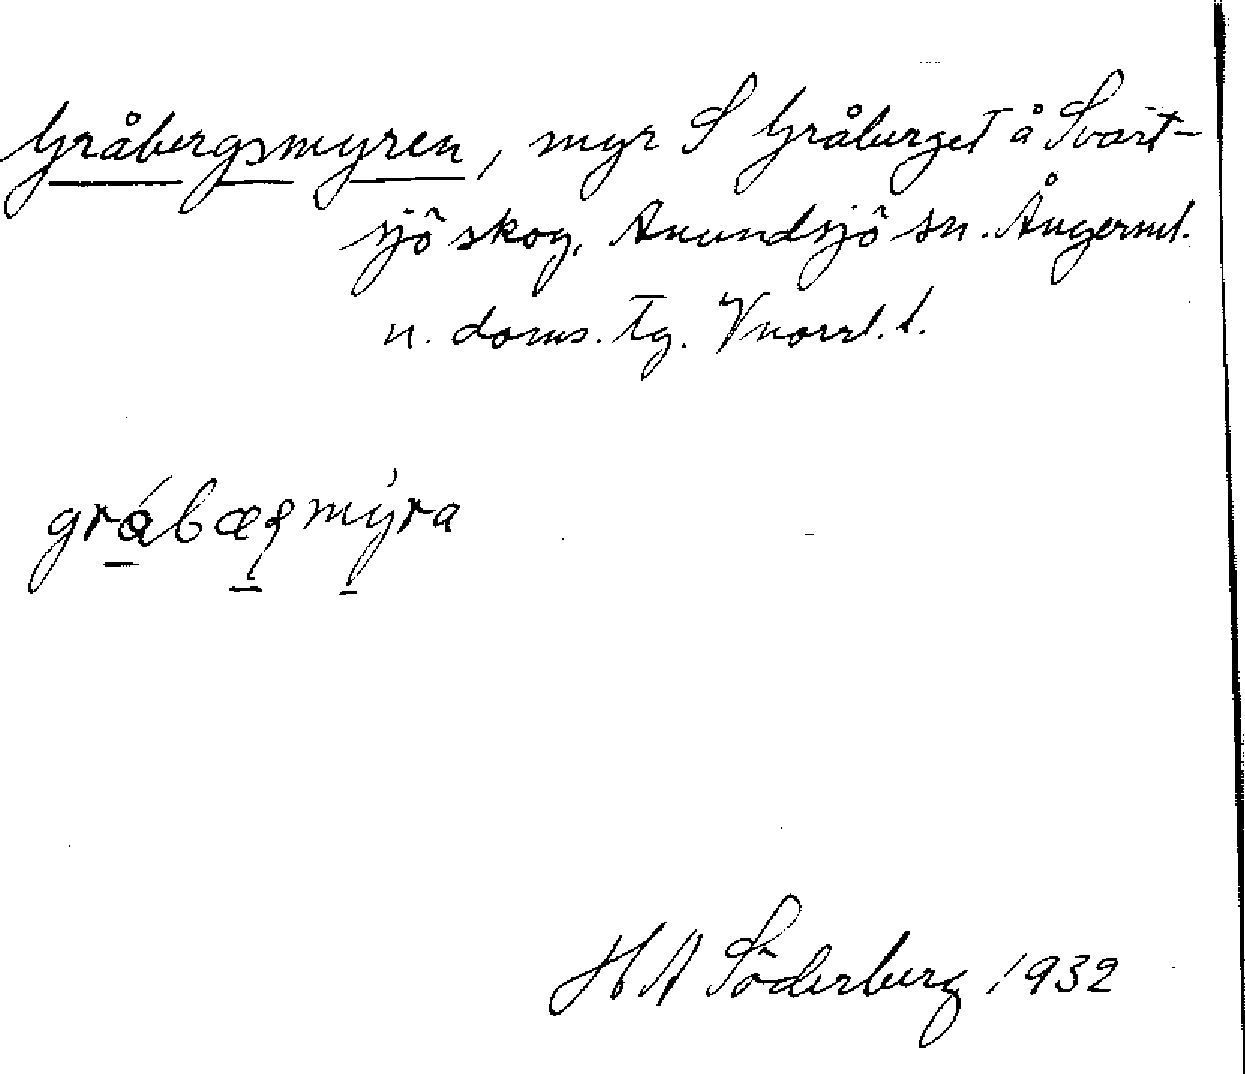 Gråbergsmyren, myr S Gråberget å Svart-
sjö skog, Anundsjö sn. Ångerml.
n. doms. tg. Vnorrl. l.
H A Söderberg 1932